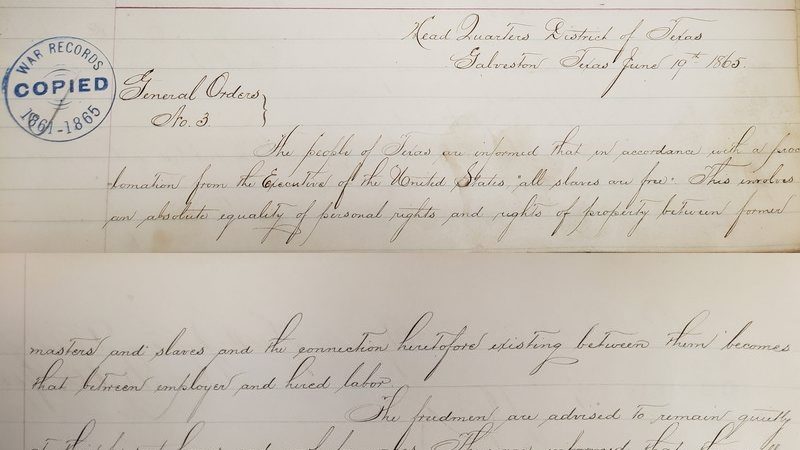 Head Quarters District of Texas
Galveston Texas June 19th 1865.
WAR RECORDS
COPIED
1861-1865
General Orders
No. 3
The people of Texas are informed that in accordance with a proc
lamation from the Executive of the United States "all slaves are free". This involves
an absolute equality of personal rights and rights of property between former
masters and slaves and the connection heretofore existing between them becomes
that between employer and hired labor.
The freedmen are advised to remain quietly